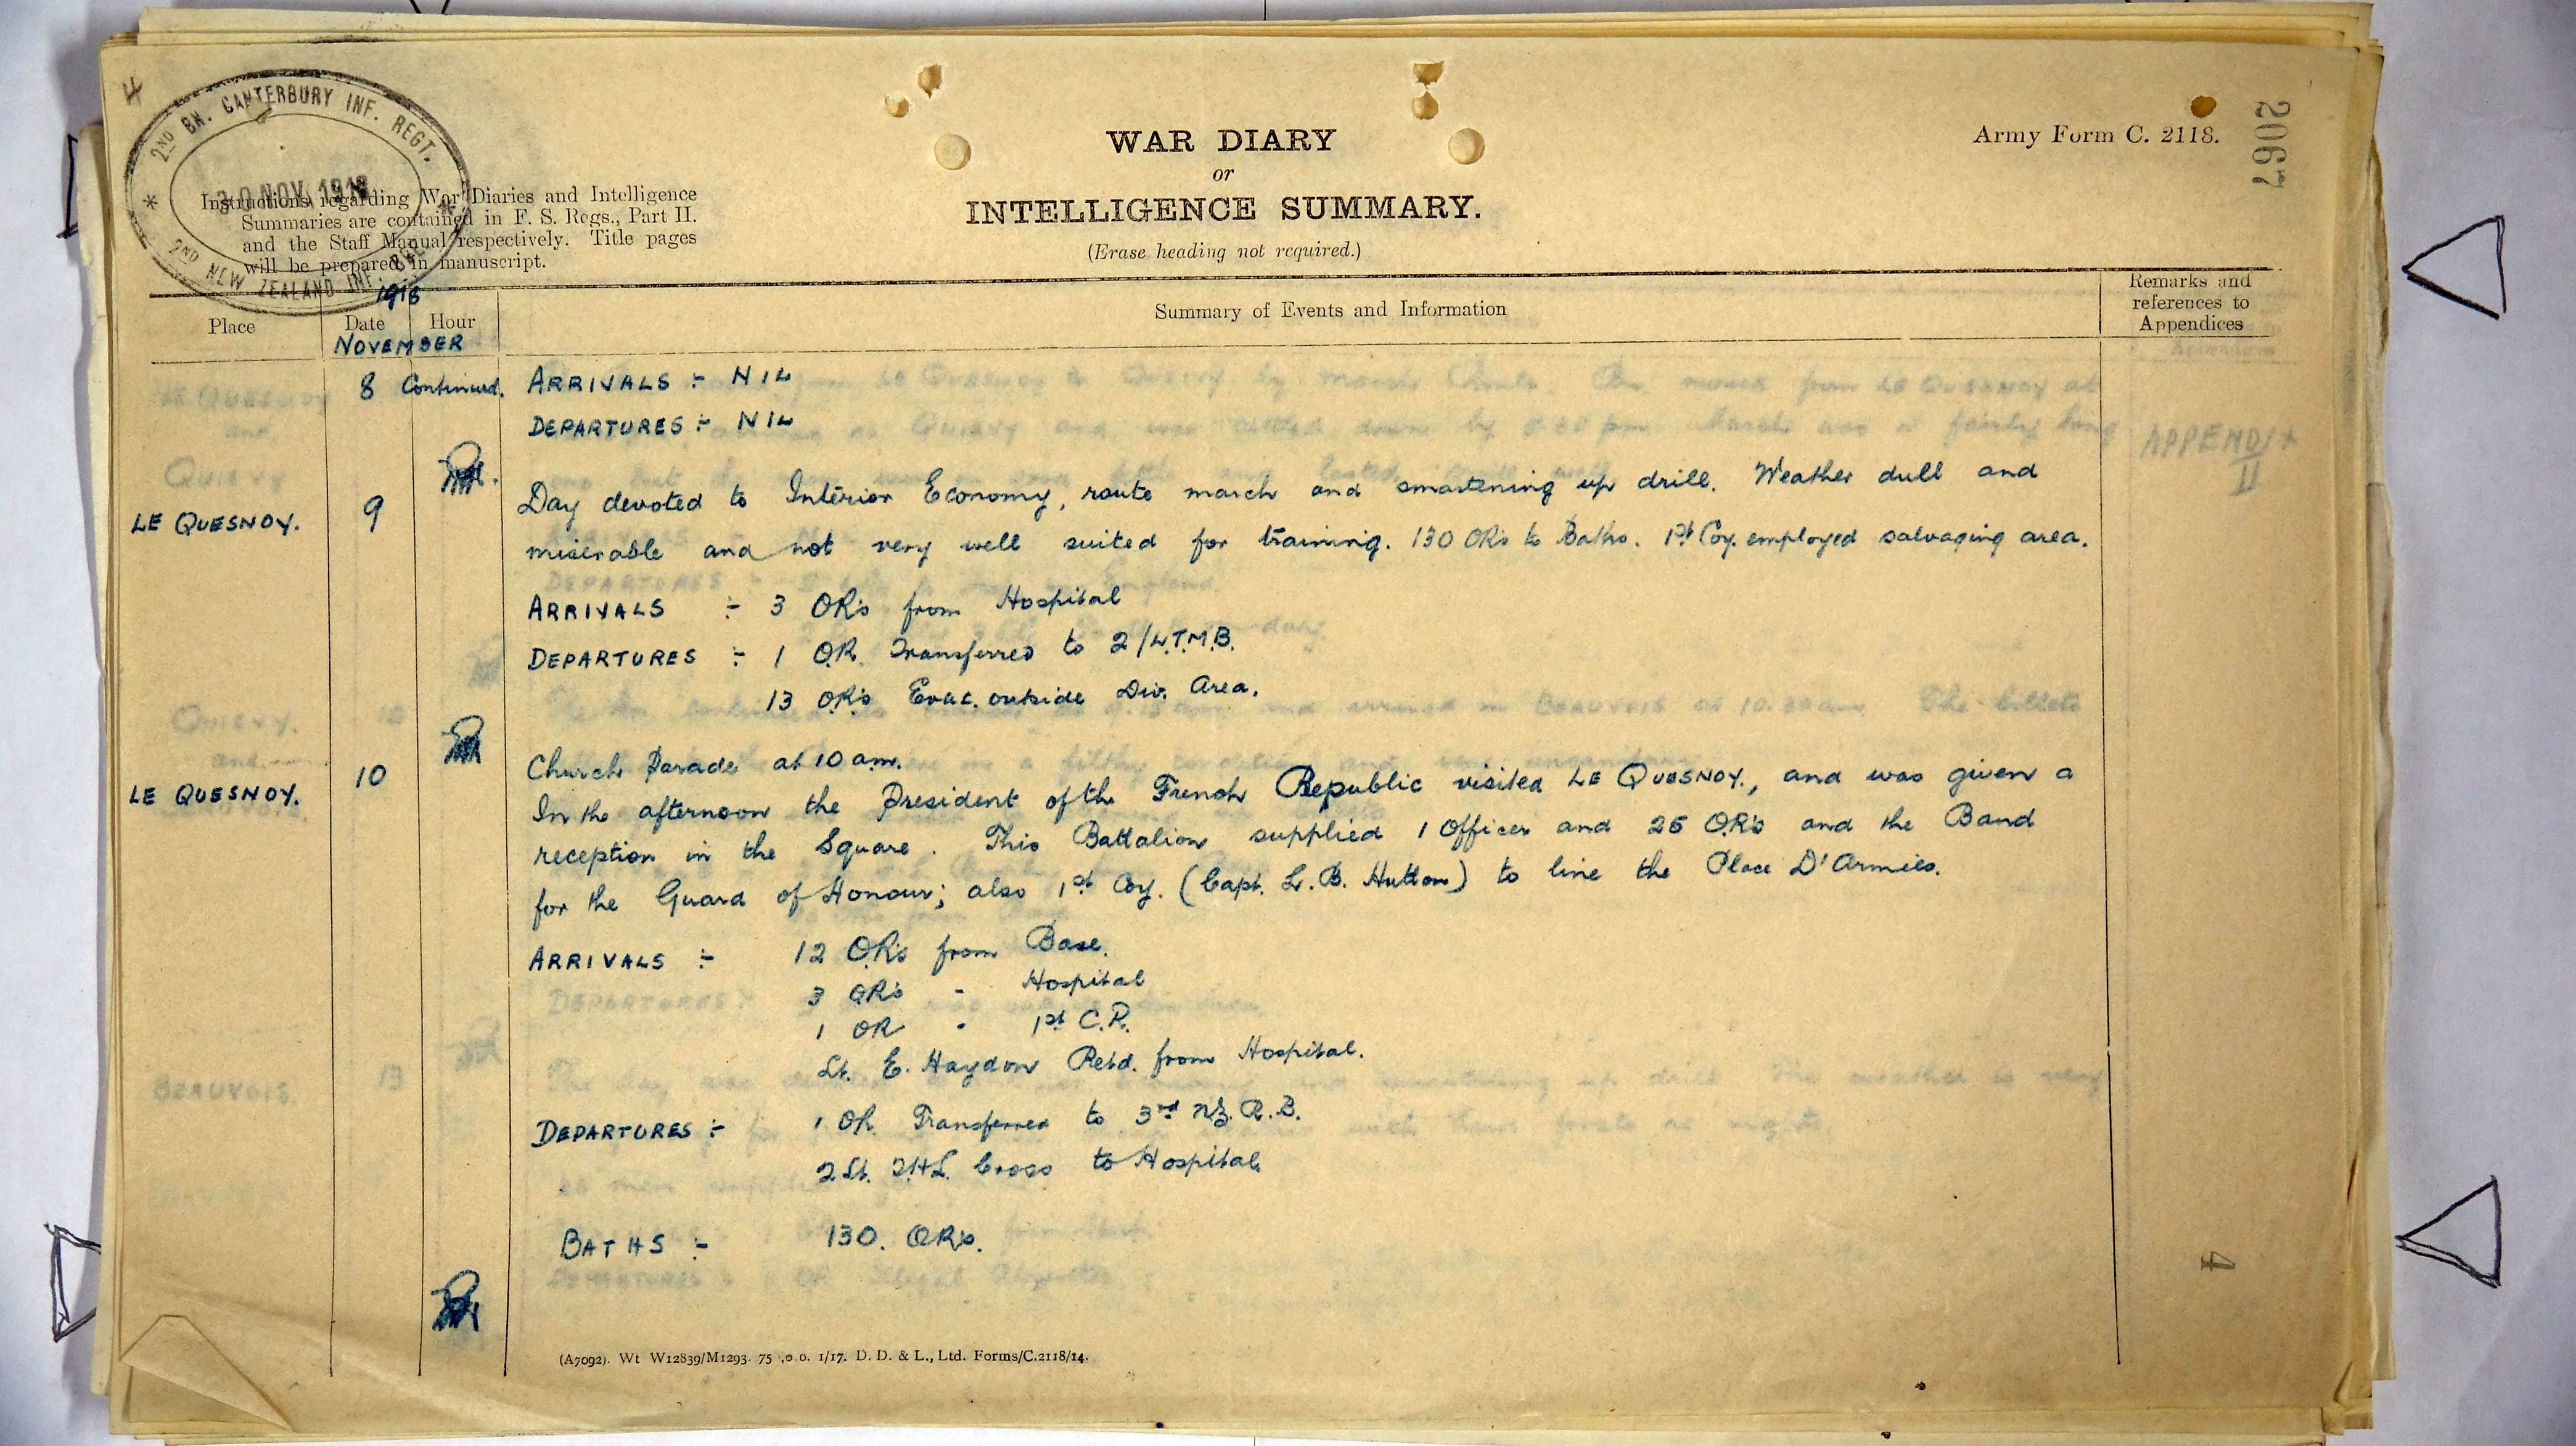 4
2ND BN. CANTERBURY INF. REGT.
30 NOV. 1918
2ND NEW ZEALAND INF. BDE
Instructions regarding War Diaries and Intelligence
Summaries are contained in F. S. Regs., Part II.
and the Staff Manual respectively. Title pages
will be prepared in manuscript.
WAR DIARY
or
INTELLIGENCE SUMMARY.
(Erase heading not required.)
Army Form C. 2118.
2067
1918
Place Date Hour Summary of Events and Information
Remarks and
references to
Appendices
NOVEMBER
8 Continued. ARRIVALS :- NIL
DEPARTURES :- NIL
LE QUESNOY. 9 Day devoted to Interior Economy, route march and smartening up drill. Weather dull and
miserable and not very well suited for training. 130 ORs to Baths. 1st Coy. employed salvaging area.
ARRIVALS :- 3 OR's from Hospital
DEPARTURES :- 1 O.R. Transferred to 2/L.T.M.B.
13 OR's Evac. outside Div. Area.
LE QUESNOY. 10 Church Parade at 10 a.m.
In the afternoon the President of the French Republic visited LE QUESNOY., and was given a
reception in the Square. This Battalion supplied 1 Officer and 25 O.R's and the Band
for the Guard of Honour; also 1st Coy. (Capt. L. B. Hutton) to line the Place D'Armies.
ARRIVALS :- 12 O.R's from Base.
3 OR's - Hospital
1 OR - 1st C.R.
Lt. E. Haydon Retd. from Hospital.
DEPARTURES :- 1 OR. Transferred to 3rd N.Z. R.B.
2Lt. Cross to Hospital.
BATHS :- 130. OR's.
(A7092). Wt W12839/M1293. 75 ,0 0. 1/17. D. D. & L., Ltd. Forms/C.2118/14.
APPENDIX
II
4